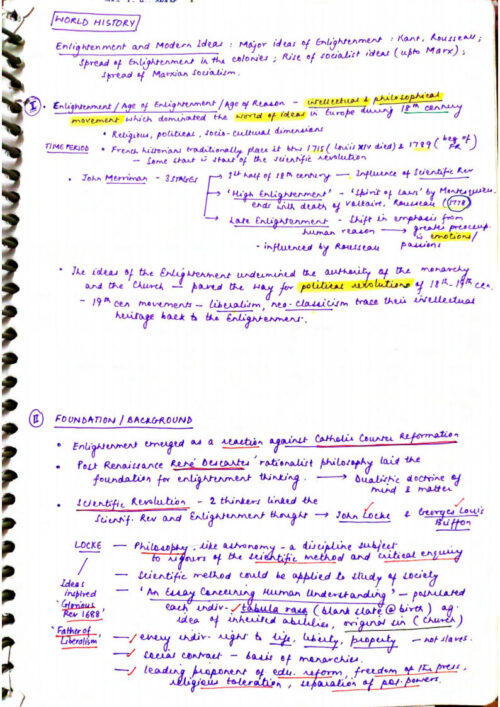 WORLD HISTORY
Enlightenment and Modern Ideas : Major ideas of Enlightenment : Kant, Rousseau;
Spread of Enlightenment in the colonies ; Rise of socialist ideas (upto Marx) ;
Spread of Marxian Socialism.
I
• Enlightenment / Age of Enlightenment / Age of Reason – intellectual & philosophical
movement which dominated the world of ideas in Europe during 18th century
• Religious, political, socio-cultural dimensions
TIME PERIOD • French historians traditionally place it btw 1715 (Louis XIV died) & 1789 (beg of FR
– Some start w start of the scientific revolution
• John Merriman – 3 STAGES → 1st half of 18th century — Influence of Scientific Rev
→ 'High Enlightenment' – 'Spirit of Laws' by Montesquieu
ends with death of Voltaire, Rousseau (1778)
→ Late Enlightenment – Shift in emphasis from
human reason → greater preoccup. in emotions/passions
- influenced by Rousseau
• The ideas of the Enlightenment undermined the authority of the monarchy
and the Church – paved the way for political revolutions of 18th-19th cen.
- 19th cen movements – liberalism, neo-classicism trace their intellectual
heritage back to the Enlightenment.
II FOUNDATION / BACKGROUND
• Enlightenment emerged as a reaction against Catholic Counter Reformation
• Post Renaissance René Descartes' rationalist philosophy laid the
foundation for enlightenment thinking. → Dualistic doctrine of
mind & matter
• Scientific Revolution – 2 thinkers linked the
Scientif. Rev and Enlightenment thought → John Locke & Georges Louis
Buffon
LOCKE — Philosophy, like astronomy – a discipline subject
to rigours of the scientific method and critical enquiry
— Scientific method could be applied to study of society
Ideas inspired 'Glorious Rev 1688'
— 'An Essay Concerning Human Understanding' – postulated
each indiv. tabula rasa (blank slate @ birth) ag.
idea of inherited abilities, original sin (church)
'Father of Liberalism'
— every indiv right to life, liberty, property — not slaves.
— social contract – basis of monarchies.
— leading proponent of edu. reform, freedom of the press,
religious toleration, separation of pol. powers.